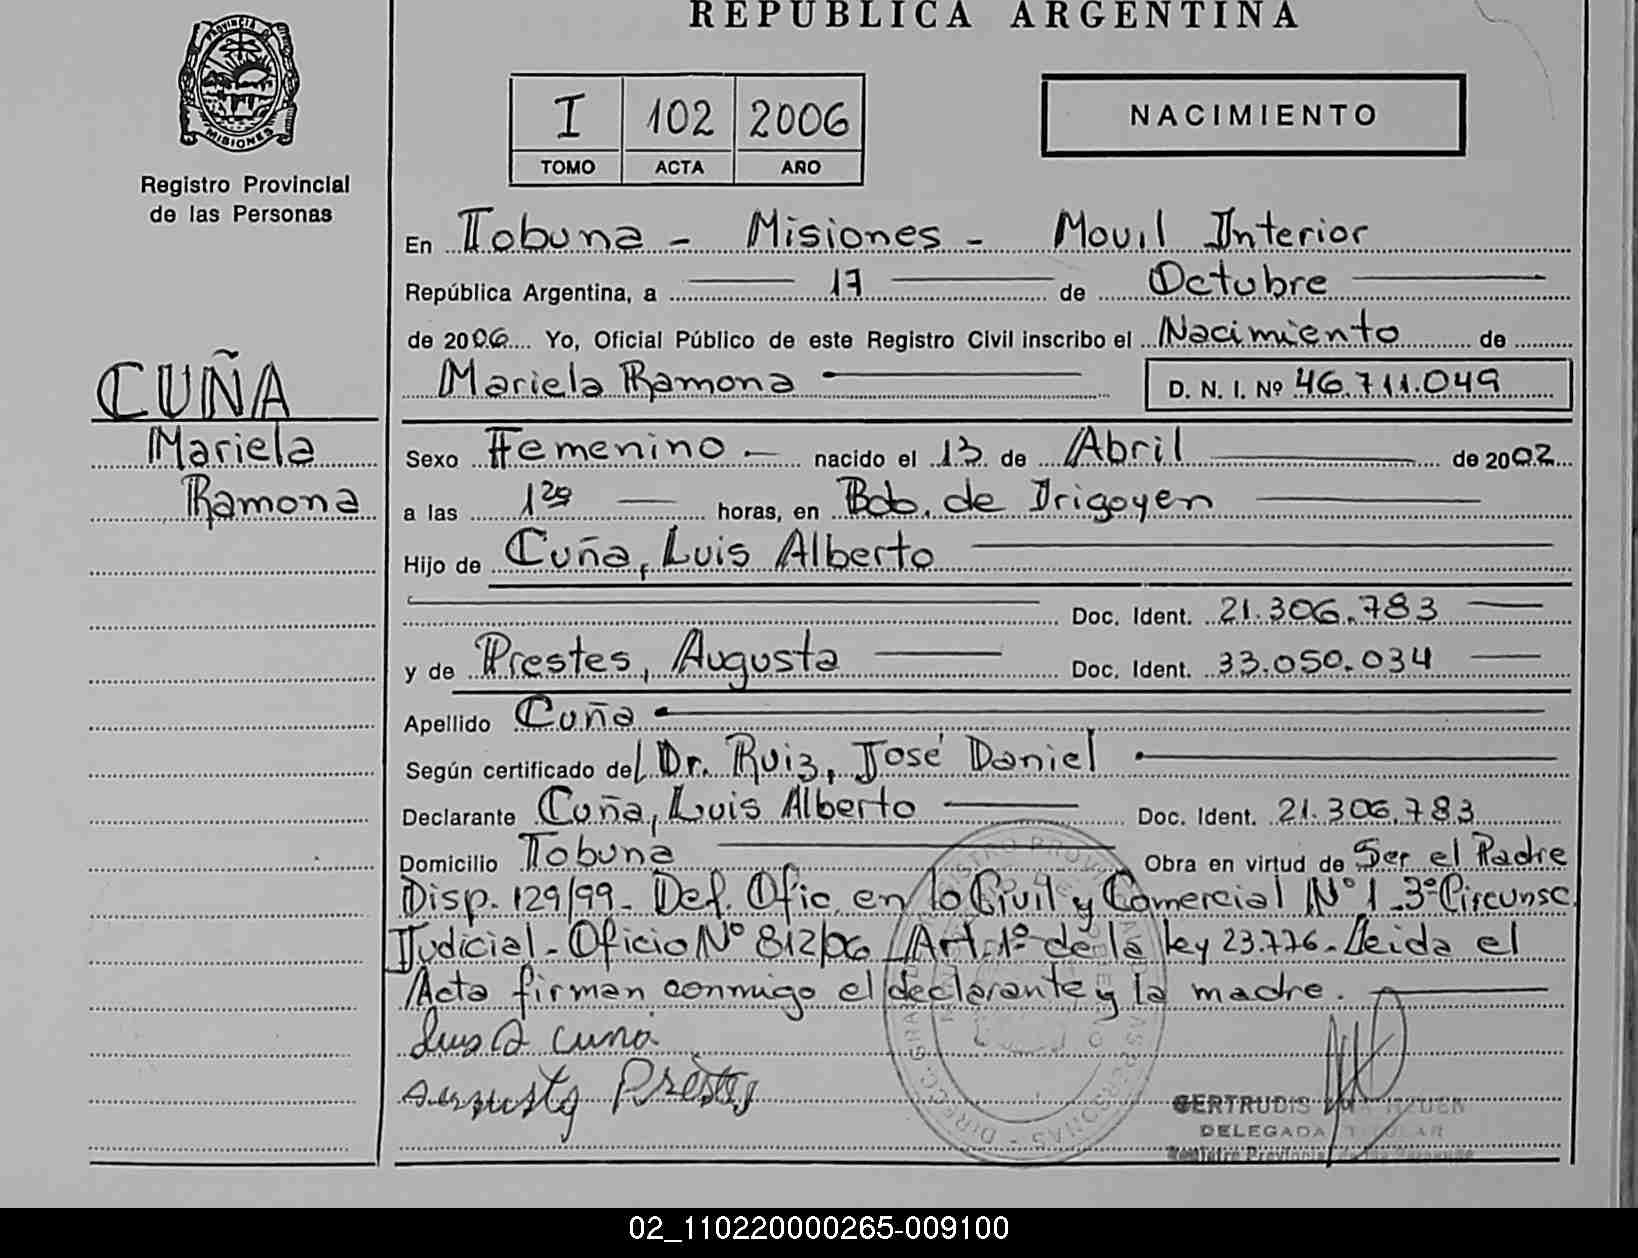 REPUBLICA ARGENTINA
PROVINCIA DE
MISIONES
Registro Provincial
de las Personas
I 102 2006
TOMO ACTA AÑO
NACIMIENTO
En Tobuna - Misiones - Movil Interior
República Argentina, a 17 de Octubre
de 2006 Yo, Oficial Público de este Registro Civil inscribo el Nacimiento de
Mariela Ramona D. N. I. Nº 46.711.049
CUÑA
Mariela
Ramona
Sexo Femenino nacido el 13 de Abril de 2002
a las 1²⁰ horas, en Bdo. de Irigoyen
Hijo de Cuña, Luis Alberto
Doc. Ident. 21.306.783
y de Prestes, Augusta Doc. Ident. 33.050.034
Apellido Cuña
Según certificado del Dr. Ruiz, José Daniel
Declarante Cuña, Luis Alberto Doc. Ident. 21.306.783
Domicilio Tobuna Obra en virtud de Ser el Padre
Disp. 129/99 - Def. Ofic. en lo Civil y Comercial Nº 1 - 3º Circunsc.
Judicial - Oficio Nº 812/06 Art. 1º de la ley 23.776 - Leida el
Acta firman conmigo el declarante y la madre.
Luis A cuña
augusta Prestes
GERTRUDIS
DELEGADA TITULAR
Registro Provincial de las Personas
02_110220000265-009100